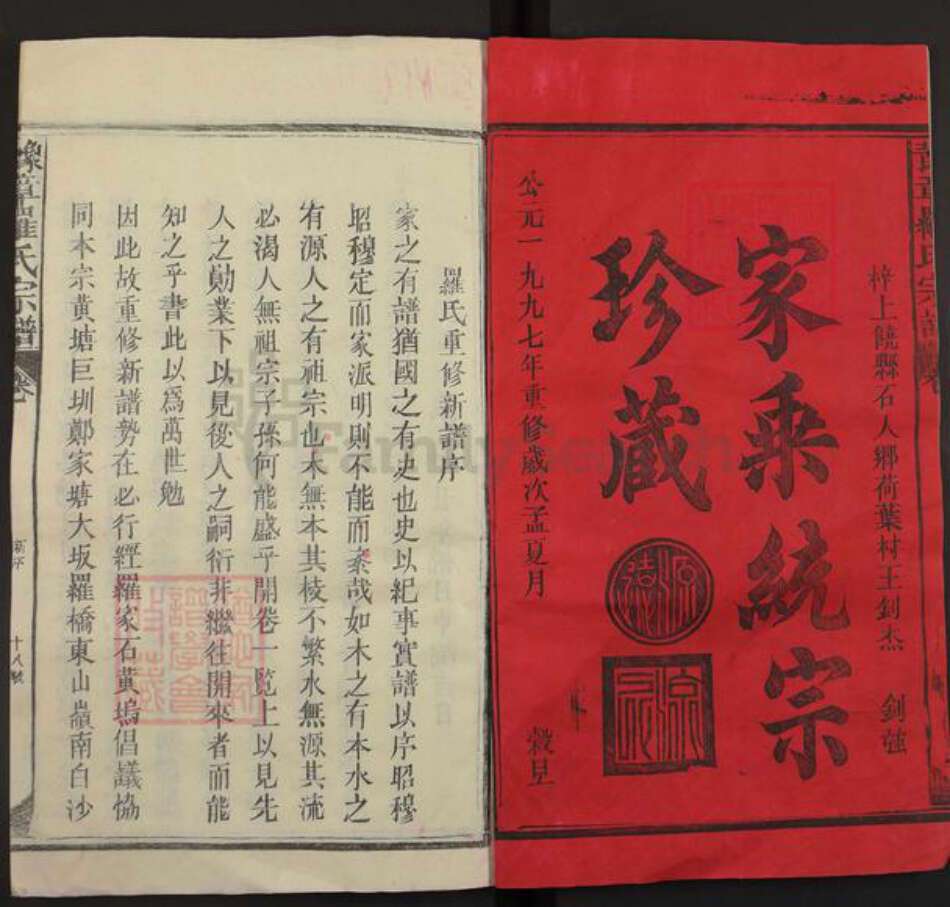 梓上饒縣石人鄉荷葉村王釗杰 釗強
家乘統宗
珍藏
公元一九九七年重修歲次孟夏月 穀旦
羅氏重修新譜序
家之有譜猶國之有史也史以紀事實譜以序昭穆
昭穆定而家派明則不能而紊哉如木之有本水之
有源人之有祖宗也木無本其棱不繁水無源其流
必渴人無祖宗子孫何能盛乎開卷一覧上以見先
人之勛業下以見後人之嗣衍非繼往開來者而能
知之乎書此以爲萬世勉
因此故重修新譜勢在必行經羅家石黄塢倡議協
同本宗黄塘巨圳鄭家塘大坂羅橋東山嶺南白沙
豫章羅氏宗譜 卷
新序
十八號
FamilySearch